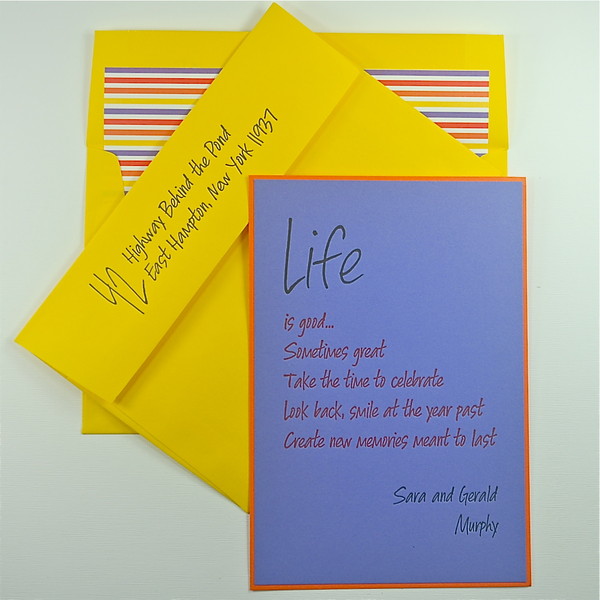 42 Highway Behind the Pond
East Hampton, New York 11937
Life
is good...
Sometimes great
Take the time to celebrate
Look back, smile at the year past
Create new memories meant to last
Sara and Gerald
Murphy